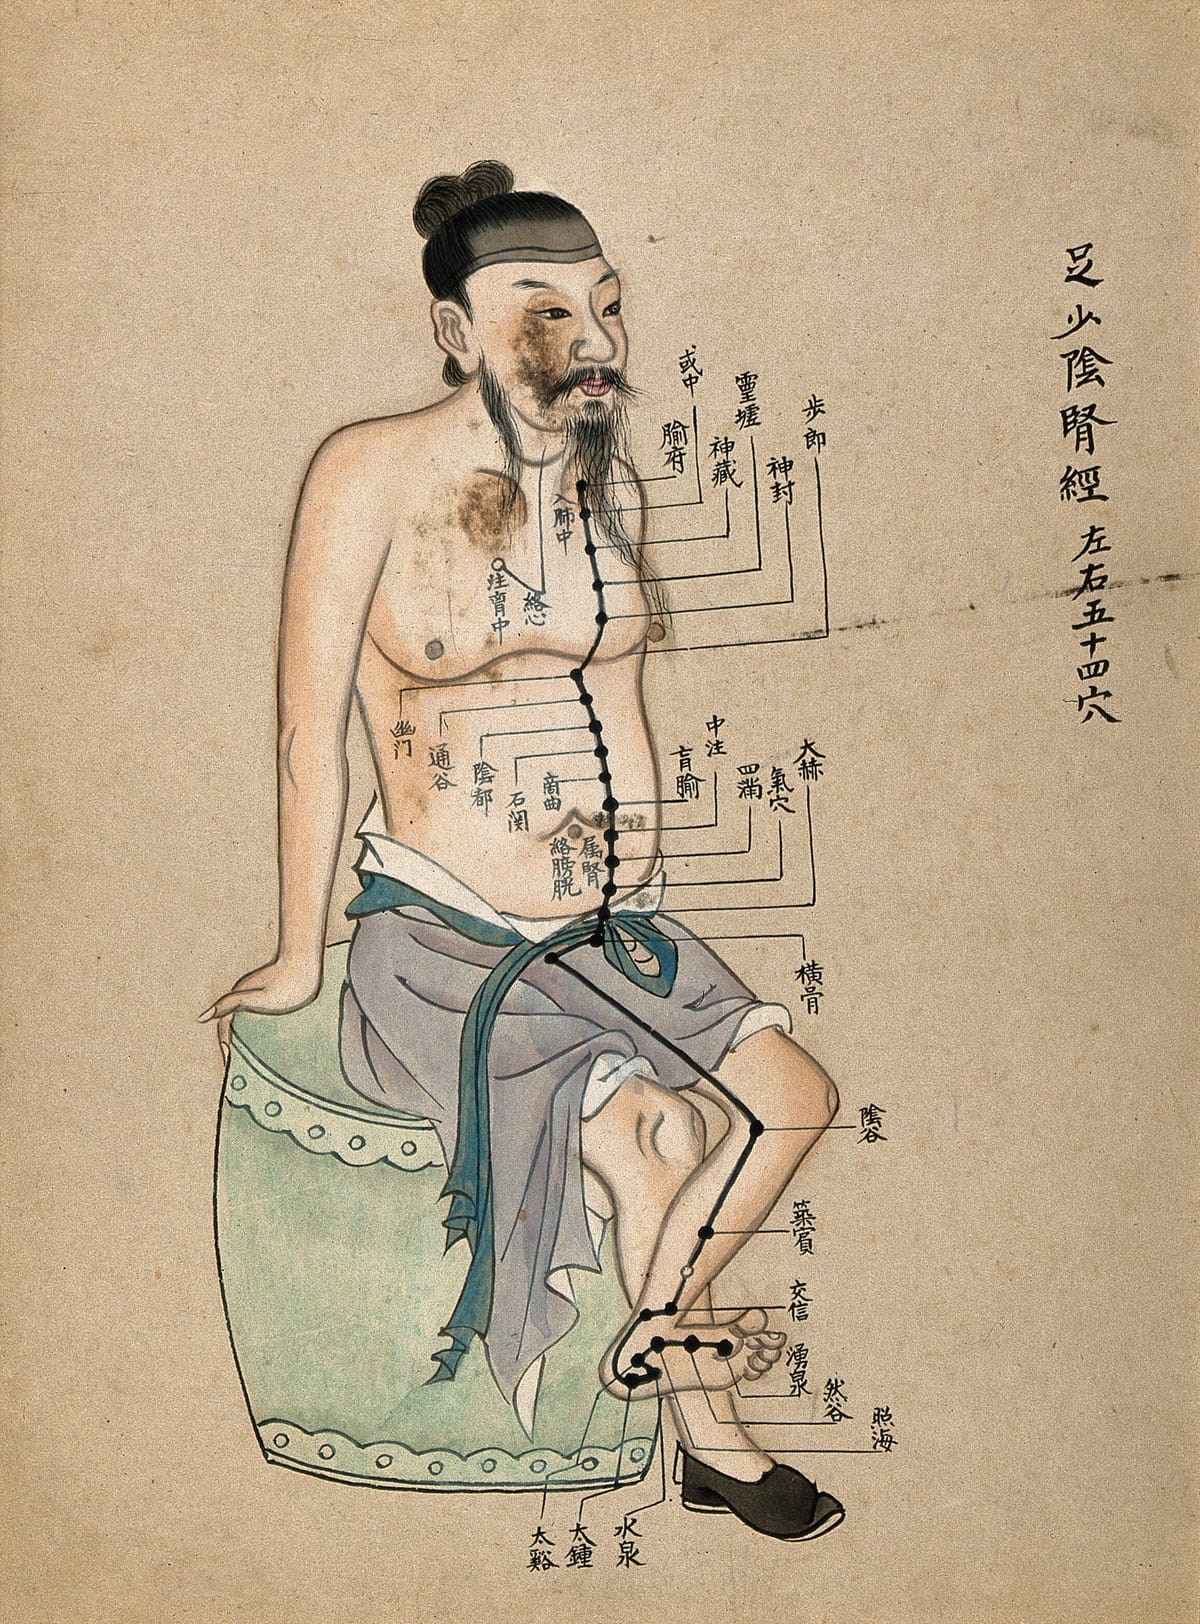 足少陰腎經 左右五十四穴
步郎
神封
靈墟
神藏
或中
腧府
入肺中
絡心
注胷中
幽门
通谷
陰都
石関
商曲
肓腧
中注
四滿
氣穴
大赫
属腎
絡膀胱
橫骨
陰谷
築賓
交信
湧泉
然谷
照海
水泉
太鍾
太谿